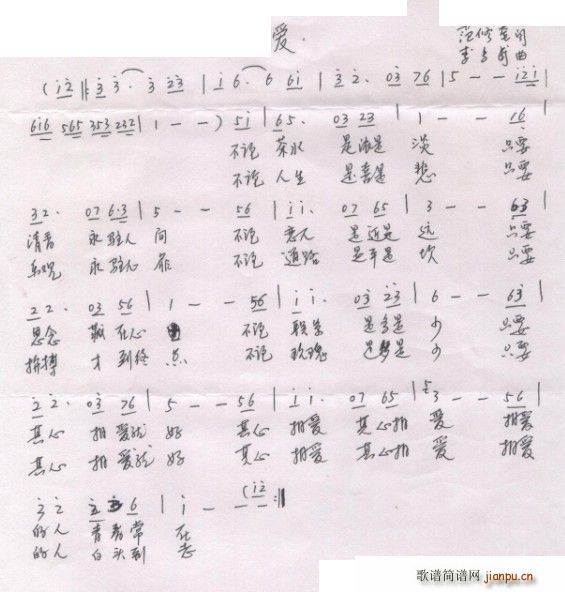 爱.
范修奎词
曲
(i2 ‖ 3 3. 3 23 | i 6. 6 6i | 3 2. 03 76 | 5 - - i2i |
6i6 565 353 232 | 1 - - ) 5i | 6 5. 03 23 | 1 - - 16 |
不论 茶水 是浓是 淡 只要
不论 人生 是喜是 悲 只要
3 2. 07 6·3 | 5 - - 56 | i i. 07 65 | 3 - - 63 |
清香 永驻人 间 不论 恋人 是近是 远 只要
乐观 永驻心 扉 不论 道路 是平是 坎 只要
2 2. 03 56 | 1 - - 56 | i i. 03 23 | 6 - - 63 |
思念 在心 不论 是多是 少 只要
拼搏 才到终 点 不论 玫瑰 是多是 少 只要
2 2. 03 76 | 5 - - 56 | i i. 07 65 | 3 - - 56 |
真心 相爱就 好 真心 相爱 真心相 爱 相爱
真心 相爱就 好 真心 相爱 真心相 爱 相爱
3 2 2 3 6 | i - (i2 :‖
的人 青春常 在
的人 白头到 老
歌谱简谱网 jianpu.cn